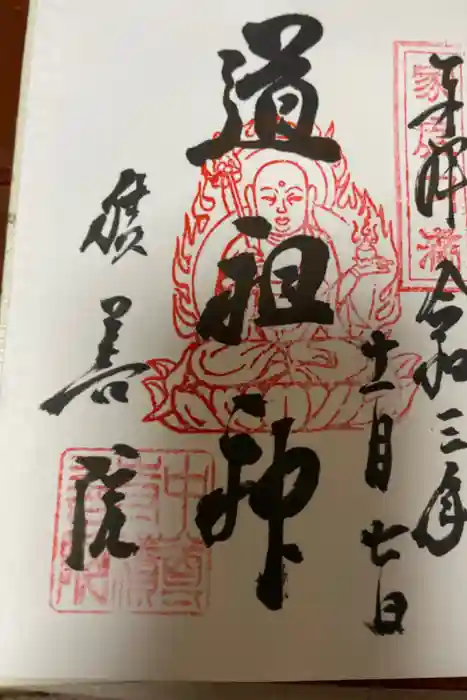 奉拝 令和三年
十一月七日
道祖神
積善院